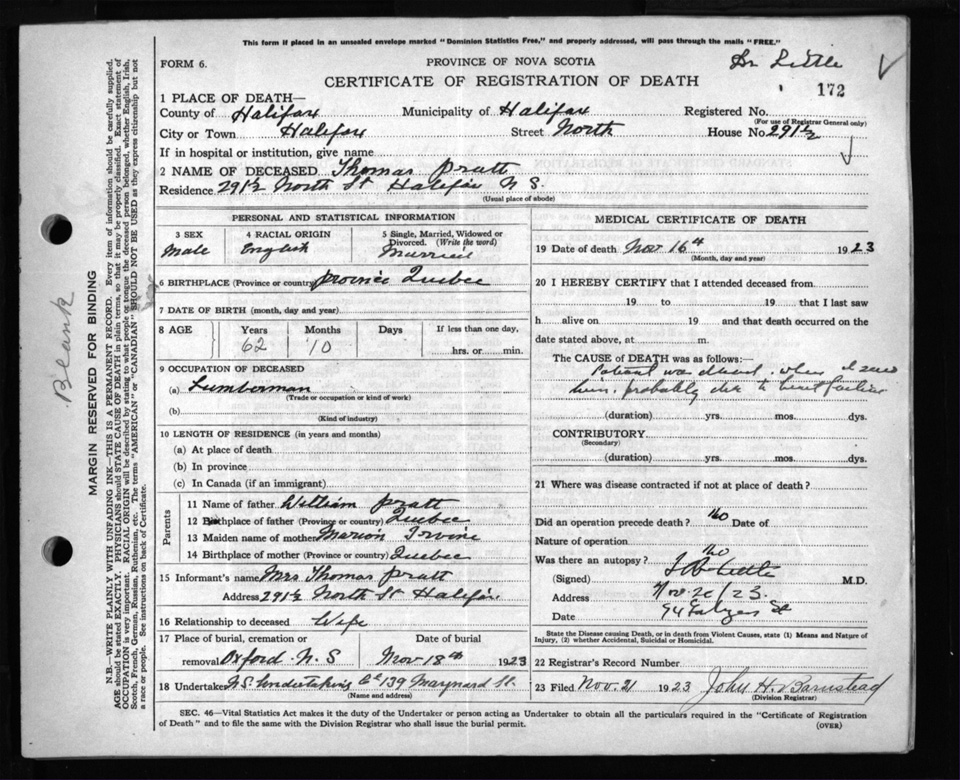 This form if placed in an unsealed envelope marked "Dominion Statistics Free," and properly addressed, will pass through the mails "FREE."
FORM 6.
PROVINCE OF NOVA SCOTIA
Dr Little
CERTIFICATE OF REGISTRATION OF DEATH
172
1 PLACE OF DEATH—
County of Halifax Municipality of Halifax Registered No.
(For use of Registrar General only)
City or Town Halifax Street North House No. 291½
If in hospital or institution, give name
2 NAME OF DECEASED Thomas Pratt
Residence 291½ North St Halifax N S.
(Usual place of abode)
PERSONAL AND STATISTICAL INFORMATION
3 SEX 4 RACIAL ORIGIN 5 Single, Married, Widowed or Divorced. (Write the word)
Male English Married
6 BIRTHPLACE (Province or country) Province Quebec
7 DATE OF BIRTH (month, day and year)
8 AGE Years Months Days If less than one day,
62 10 hrs. or min.
9 OCCUPATION OF DECEASED
(a) Lumberman
(Trade or occupation or kind of work)
(b)
(Kind of industry)
10 LENGTH OF RESIDENCE (in years and months)
(a) At place of death
(b) In province
(c) In Canada (if an immigrant)
Parents
11 Name of father William Pratt
12 Birthplace of father (Province or country) Quebec
13 Maiden name of mother Marion Irvine
14 Birthplace of mother (Province or country) Quebec
15 Informant's name Mrs Thomas Pratt
Address 291½ North St Halifax
16 Relationship to deceased Wife
17 Place of burial, cremation or removal Oxford N.S Date of burial Nov 18th 1923
18 Undertaker N.S. Undertaking Co 139 Maynard St.
(Name and address)
MEDICAL CERTIFICATE OF DEATH
19 Date of death Nov 16th 1923
(Month, day and year)
20 I HEREBY CERTIFY that I attended deceased from
19 to 19 that I last saw
h alive on 19 and that death occurred on the
date stated above, at m.
The CAUSE of DEATH was as follows:—
Patient was dead when I saw
him. probably due to heart failure
(duration) yrs. mos. dys.
CONTRIBUTORY
(Secondary)
(duration) yrs. mos. dys.
21 Where was disease contracted if not at place of death?
Did an operation precede death? No Date of
Nature of operation
Was there an autopsy? No
(Signed) Little M.D.
Address Nov. 20/23.
Date 94 St
State the Disease causing Death, or in death from Violent Causes, state (1) Means and Nature of Injury, (2) whether Accidental, Suicidal or Homicidal.
22 Registrar's Record Number
23 Filed Nov. 21 1923 John H. Barnstead
(Division Registrar)
SEC. 46—Vital Statistics Act makes it the duty of the Undertaker or person acting as Undertaker to obtain all the particulars required in the "Certificate of Registration
of Death" and to file the same with the Division Registrar who shall issue the burial permit.
(OVER)
Blank
MARGIN RESERVED FOR BINDING
N.B.—WRITE PLAINLY WITH UNFADING INK—THIS IS A PERMANENT RECORD. Every item of information should be carefully supplied.
AGE should be stated EXACTLY. PHYSICIANS should STATE CAUSE OF DEATH in plain terms, so that it may be properly classified. Exact statement of
OCCUPATION is very important. RACIAL ORIGIN will be described by stating to what people or tongue the deceased person belonged, whether English, Irish,
Scotch, French, German, Russian, Ruthenian, etc. The terms "AMERICAN" or "CANADIAN" SHOULD NOT BE USED as they express citizenship but not
a race or people. See instructions on back of Certificate.